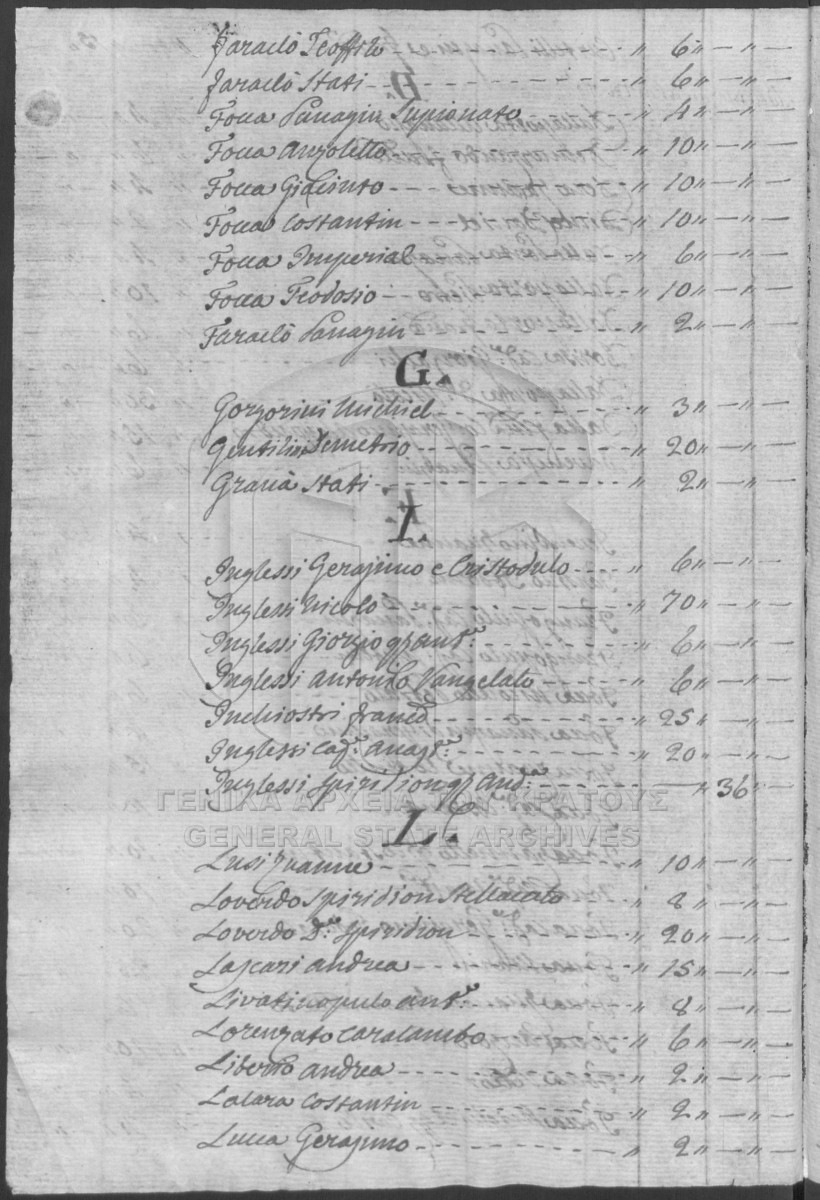 Faraclò Teoffilo - - - " 6 " — " —
Faraclò Stati - - - " 6 " — " —
Focca Panagin Supionato " 4 " — " —
Focca Anzoletto - - - " 10 " — " —
Focca Giacinto - - - " 10 " — " —
Focca Costantin - - - " 10 " — " —
Focca Imperial - - - " 6 " — " —
Focca Teodosio - - - " 10 " — " —
Faraclò Panagin - - - " 2 " — " —
G.
Gorgorini Michiel - - - " 3 " — " —
Gentilini Demetrio - - - " 20 " — " —
Gravà Stati - - - " 2 " — " —
I.
Inglessi Gerasimo e Cristodulo - - - " 6 " — " —
Inglessi Nicolò - - - " 70 " — " —
Inglessi Giorgio qz Ant.º - - - " 6 " — " —
Inglessi Antonio Vangelato - - - " 6 " — " —
Inchiostri Franc.º - - - " 25 " — " —
Inglessi Cap.n Anag.º - - - " 20 " — " —
Inglessi Spiridion qz And.a - - - — " 36 " —
ΓΕΝΙΚΑ ΑΡΧΕΙΑ ΤΟΥ ΚΡΑΤΟΥΣ
GENERAL STATE ARCHIVES
L.
Lusi Zuanne - - - " 10 " — " —
Loverdo Spiridion Stellacato " 8 " — " —
Loverdo D.r Spiridion - - - " 20 " — " —
Lascari Andrea - - - " 15 " — " —
Livatinopulo Ant.º - - - " 8 " — " —
Lorenzato Caralambo " 6 " — " —
Andrea - - - " 2 " — " —
Lalara Costantin - - - " 2 " — " —
Lucca Gerasimo - - - " 2 " — " —